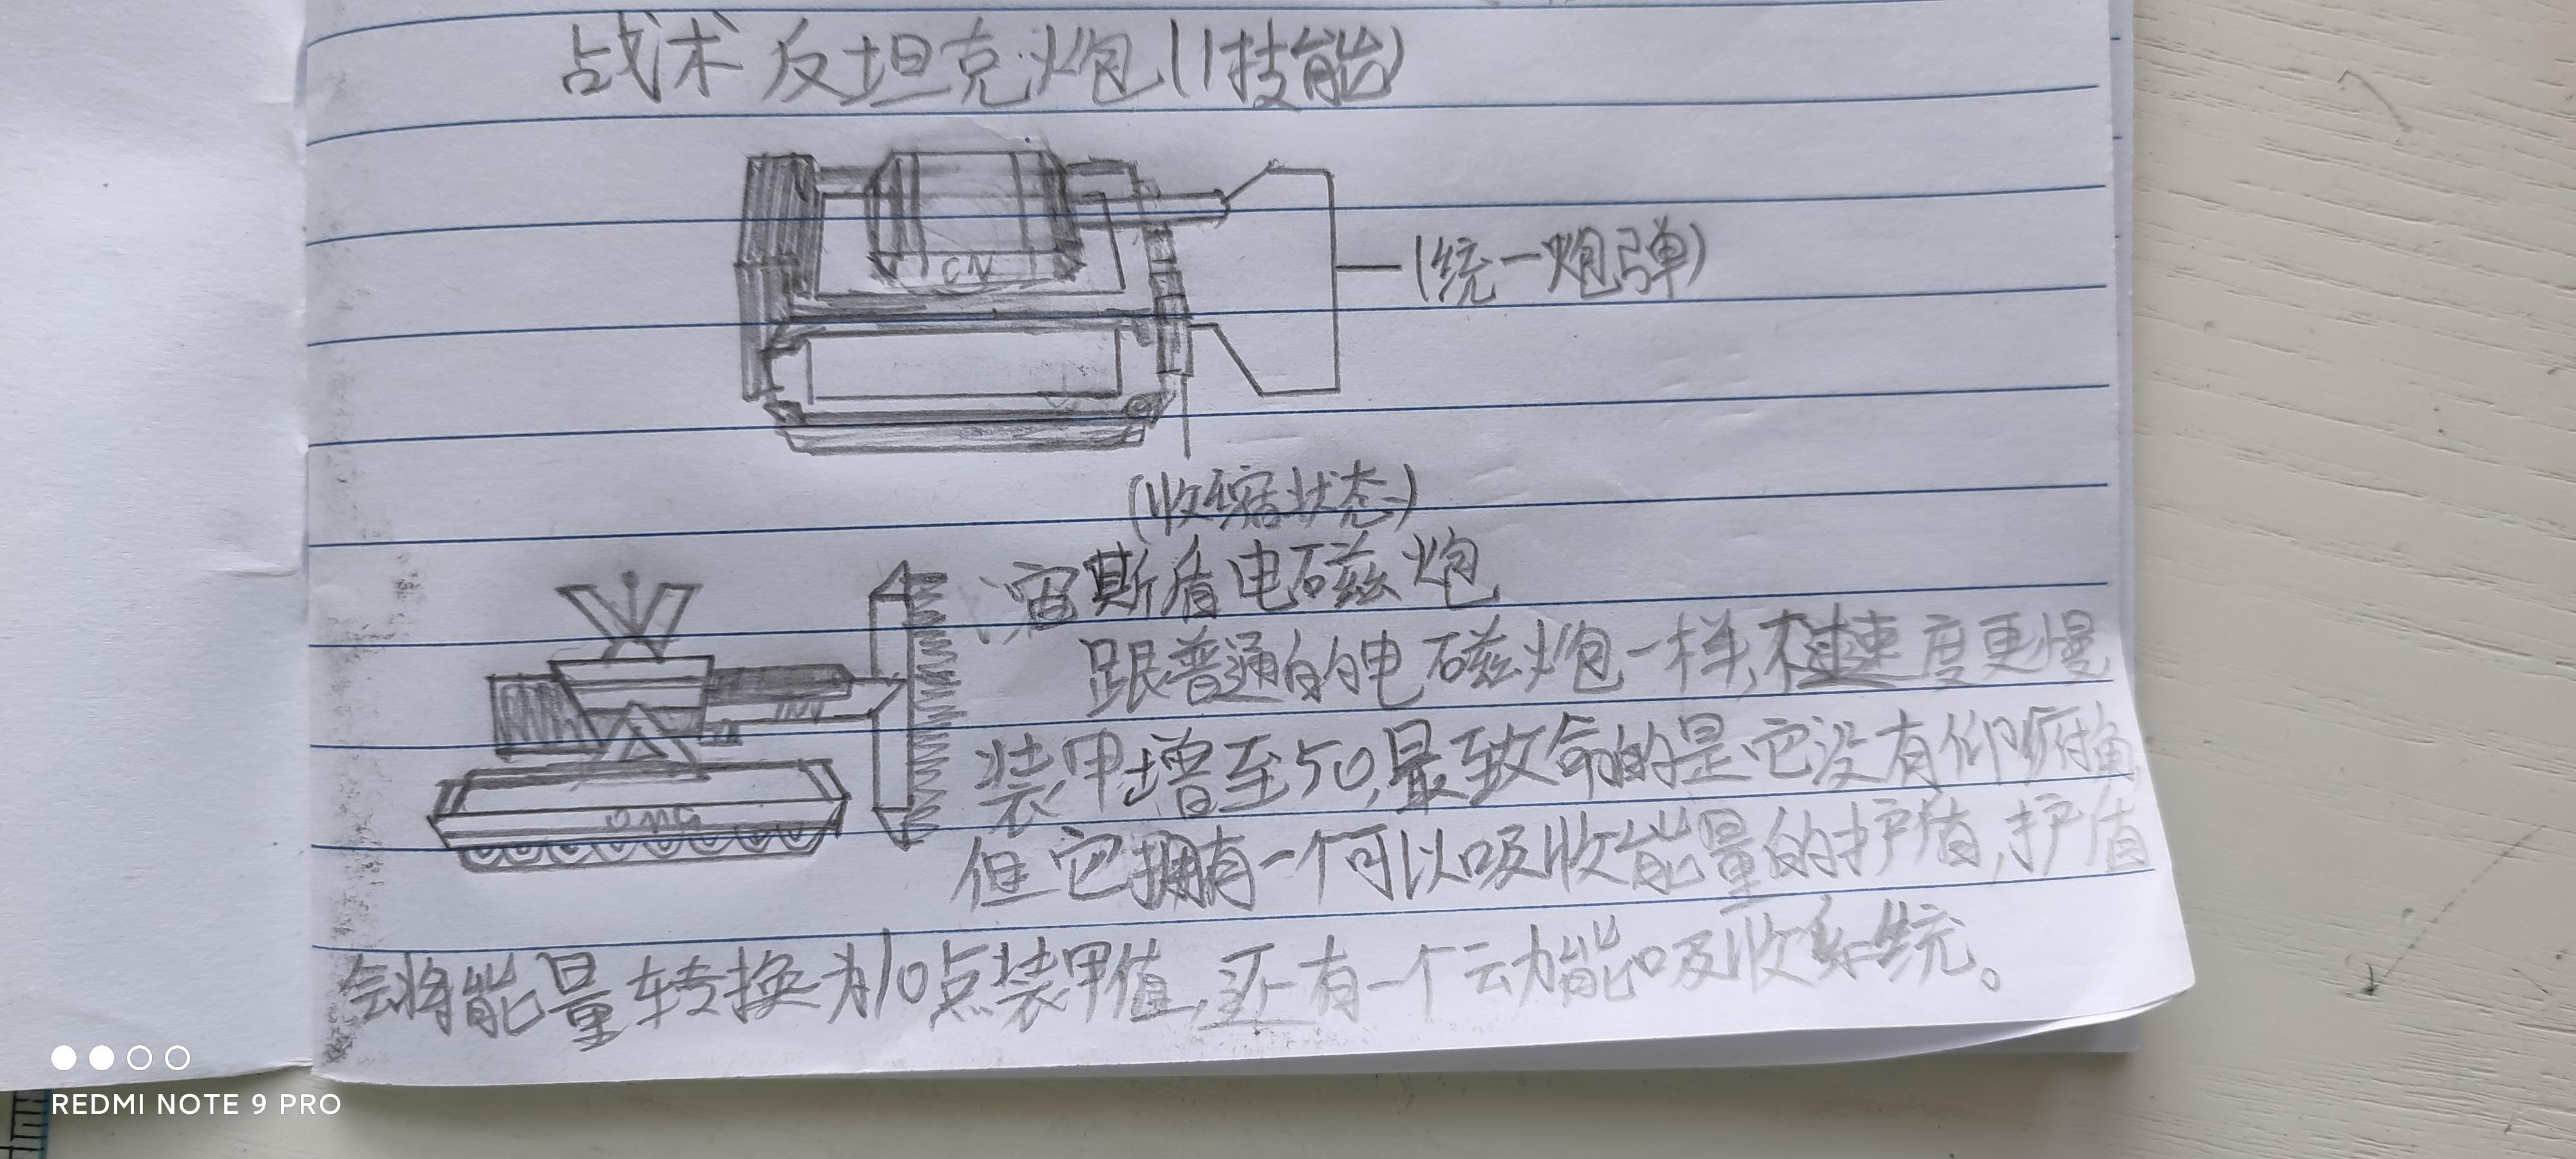 战术反坦克炮(1技能)
CN
(统一炮弹)
(收缩状态)
宙斯盾电磁炮
跟普通的电磁炮一样,不过速度更慢
装甲增至50,最致命的是它没有仰俯角,
但它拥有一个可以吸收能量的护盾,护盾
会将能量转换为10点装甲值,还有一个动能吸收系统。
REDMI NOTE 9 PRO